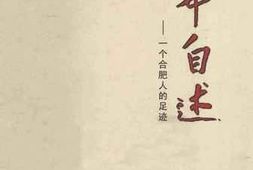 自述
——一个合肥人的足迹